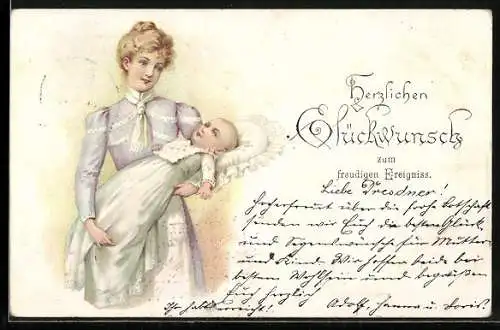 Herzlichen
Glückwunsch
zum
freudigen Ereigniss.
Liebe Dresdner!
Hocherfreut über die frohe Botschaft
senden wir Euch die besten Glück
und Segenswünsche für Mutter
und Kind. Wir hoffen beide bei
bestem Wohlsein und begrüßen
Euch herzlich
Adolf, Hanna u. Doris